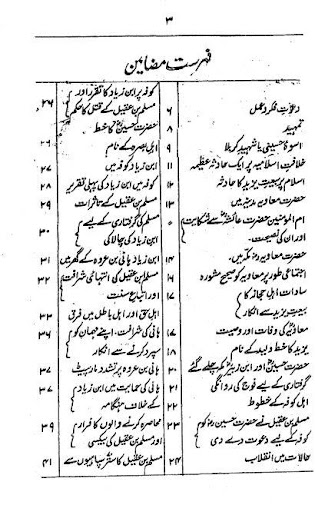 ۳
فہرست مضامین
دعوت فکر و عمل ۶
تمہید ۸
اسوۂ حسینی یا شہید کربلا ۹
خلافت اسلامیہ پر ایک حادثہ عظیمہ ۱۱
اسلام پر بیعت یزید کا حادثہ ۱۲
حضرت معاویہ مدینہ میں ۱۳
ام المومنین حضرت عائشہؓ سے شکایت
اور ان کی نصیحت۔
حضرت معاویہ مکہ میں۔ ۱۴
اجتماعی طور پر معاویہ کو صحیح مشورہ
سادات اہل حجاز کا
بیعت یزید سے انکار
معاویہؓ کی وفات اور وصیت ۱۷
یزید کا خط ولید کے نام ۱۸
حضرت حسینؓ اور ابن زبیرؓ مکہ چلے گئے ۲۰
گرفتاری کے لیے فوج کی روانگی ۲۱
اہل کوفہ کے خطوط ۲۲
مسلم بن عقیل نے حضرت حسینؓ کو ۲۳
کوفہ کے لیے دعوت دے دی
حالات میں انقلاب ۲۴
کوفہ پر ابن زیاد کا تقرر اور
مسلم بن عقیل کے قتل کا حکم ۲۶
حضرت حسینؓ کا خط
اہل بصرہ کے نام ۲۶
ابن زیاد کوفہ میں ۲۷
کوفہ میں ابن زیاد کی پہلی تقریر ۲۸
مسلم بن عقیل کے تاثرات ۲۹
مسلم کی گرفتاری کے لیے
ابن زیاد کی چالاکی ۳۰
ابن زیاد ہانی بن عروہ کے گھر میں ۳۱
مسلم بن عقیل کی انتہائی شرافت ۳۲
اور اتباع سنت
اہل حق اور اہل باطل میں فرق ۳۳
ہانی کی شرافت۔ اپنے مہمان کو ۳۶
سپرد کرنے سے انکار
ہانی بن عروہ پر تشدد مار پیٹ ۳۷
ہانی کی حمایت میں ابن زیاد ۳۷
کے خلاف ہنگامہ
محاصرہ کرنے والوں کا فرار ۳۹
اور مسلم بن عقیل کی بیکسی
مسلم بن عقیل کا ستر سپاہیوں سے ۴۱